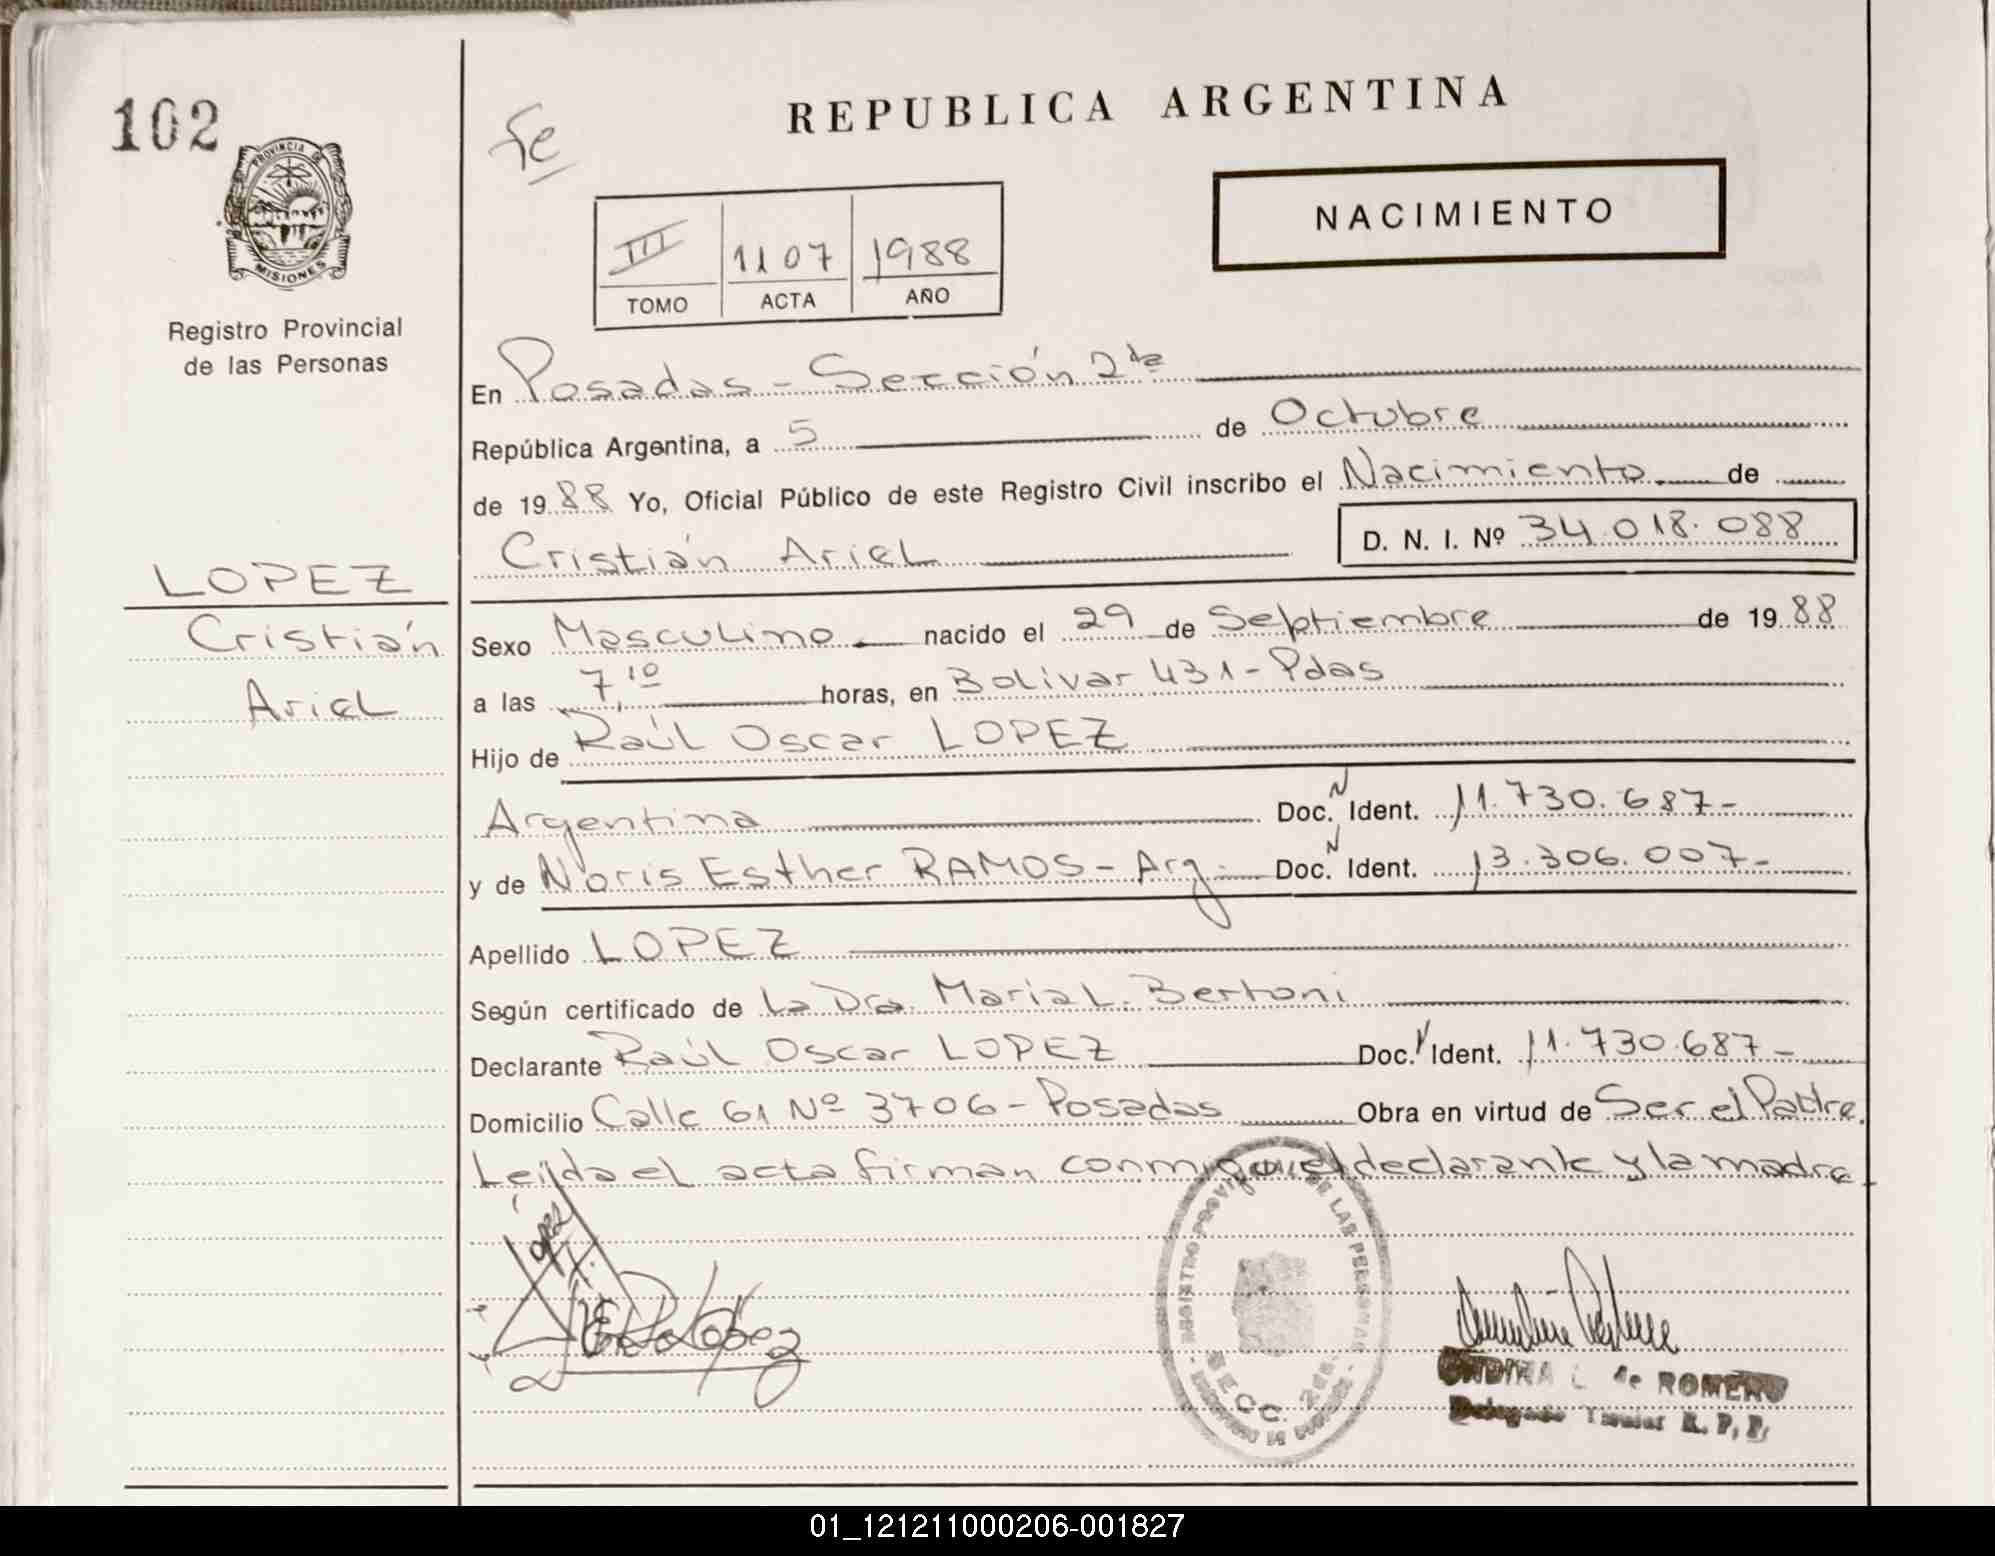 102
REPUBLICA ARGENTINA
Fe
PROVINCIA DE MISIONES
NACIMIENTO
III 1107 1988
TOMO ACTA AÑO
Registro Provincial
de las Personas
En Posadas - Sección 2da
República Argentina, a 5 de Octubre
de 1988 Yo, Oficial Público de este Registro Civil inscribo el Nacimiento de
Cristián Ariel D. N. I. Nº 34.018.088
LOPEZ
Cristián
Ariel
Sexo Masculino nacido el 29 de Septiembre de 1988
a las 7,10 horas, en Bolivar 431 - Pdas
Hijo de Raúl Oscar LOPEZ
Argentina Doc. N Ident. 11.730.687-
y de Noris Esther RAMOS - Arg. Doc. N Ident. 13.306.007-
Apellido LOPEZ
Según certificado de La Dra. Maria L. Bertoni
Declarante Raúl Oscar LOPEZ Doc. N Ident. 11.730.687-
Domicilio Calle 61 Nº 3706 - Posadas Obra en virtud de Ser el Padre.
Leída el acta firman conmigo el declarante y la madre
Lopez
Lopez
REGISTRO PROVINCIAL DE LAS PERSONAS
SECC. 2da.
ONDINA L. de ROMERO
Delegado Titular R. P. P.
01_121211000206-001827